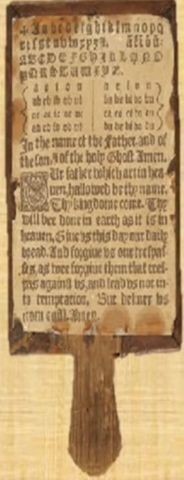 A a b c d e f g h i j k l m n o p q
r s t u v w x y z &. a e i o u
A B C D E F G H I J K L M N O
P Q R S T U W X Y Z.
a e i o u a e i o u
ab eb ib ob ub ba be bi bo bu
In the name of the Father and of
the Son, & of the holy Ghost Amen.
Our Father which art in hea-
uen, hallowed be thy name.
Thy kingdome come. Thy
will bee done in earth as it is in
heauen. Giue vs this day our daily
bread. And forgiue vs our trespas-
ses, as wee forgiue them that tres-
pas against vs, and lead vs not in-
to temptation. But deliuer vs
from euill. Amen.